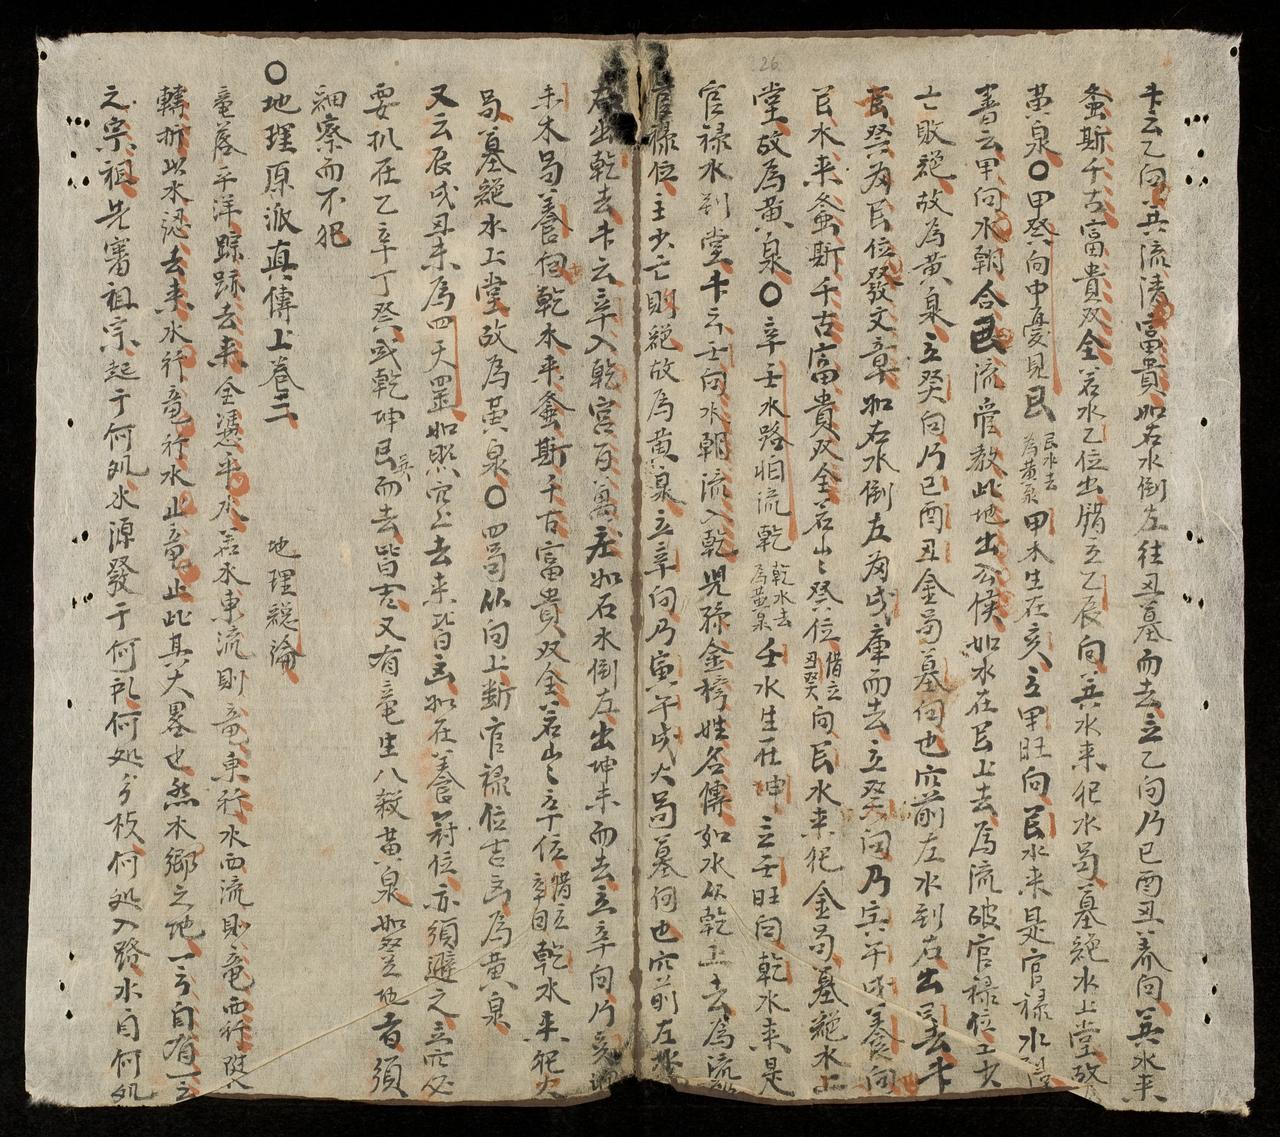 卡云乙向巽流清富貴如右水倒左往丑墓而去立乙向乃巳酉丑養向巽水来
螽斯千古富貴双全若水乙位出借立乙辰向巽水来犯水局墓絕水上堂故
黃泉〇甲癸向中憂見艮艮水去為黃泉甲木生在亥立甲旺向艮水来是官禄水
書云甲向水朝合艮流管教此地出公侯如水在艮上去為流破官禄位主少
亡敗絕故為黃泉立癸向乃巳酉丑金局墓向也穴前左水到右出艮去卡
艮癸為艮位發文章如右水倒左為戌庫而去立癸向乃寅午戌養向
艮水来螽斯千古富貴双全若山山癸位借立丑癸向艮水来犯金局墓絕水上
堂故為黃泉〇辛壬水路怕流乾乾水去為黃泉壬水生在坤立壬旺向乾水来是
官禄水到堂卡云壬向水朝流入乾児孫金榜姓名傳如水从乾上去為流
官禄位主少亡則絕故為黃泉立辛向乃寅午戌火局墓向也穴前左水
右出乾去卡云辛入乾宮百萬庄如右水倒左出坤未而去立辛向乃亥
未木局養向乾水来螽斯千古富貴双全若山山辛位借立辛向乾水来犯火
局墓絕水上堂故為黃泉〇四局从向上断官禄位吉凶為黃泉
又云辰戌丑未為四天罡如照穴上去来皆凶如在養冠位亦須避之立穴必
要扒在乙辛丁癸或乾坤艮巽而去皆吉又有竜生八殺黃泉如登地者須
細察而不犯
〇地理原派真傳上卷三 地理総論
竜落平洋踪跡去来全憑乎水若水東流則竜東行水西流則竜西行
轉折此水恐去来水行竜行水止竜止此其大畧也然水鄉之地一方自有一方
之宗祖先審祖宗起于何処水源發于何処何処分枝何処入路水自何処